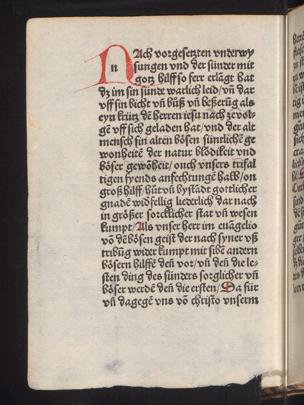 Nach vorgesetzten vnderwy
sungen vnd der sünder mit
gotz hilff so ferr erlāgt hat
dz im sin sünde warlich leid/vn̄ dar
vff sin bicht vn̄ bůß vn̄ beßerūg als
eyn krütz dē herren iesu nach zevol-
gē vff sich geladen hat/vnd der alt
mensch sin alten bösen süntlichē ge
wonheitē der natur blödikeit vnd
böser gewöheit/ouch vnsers trifal
tigen fyends anfechtungē halb/on
groß hilff/hůt vn̄ bystādt gotlicher
gnadē widfellig liederlich dar nach
in größer sorcklicher stat vn̄ wesen
kumpt/Als vnser herr im euāgelio
vō dē bösen geist der nach syner vß
tribūg wider kumpt mit sibē andern
bösern hilffē den vor/vn̄ den die le-
sten ding des sünders sorglicher vn̄
böser werdē den die ersten/Da für
vn̄ dagegē vns vō christo vnserm